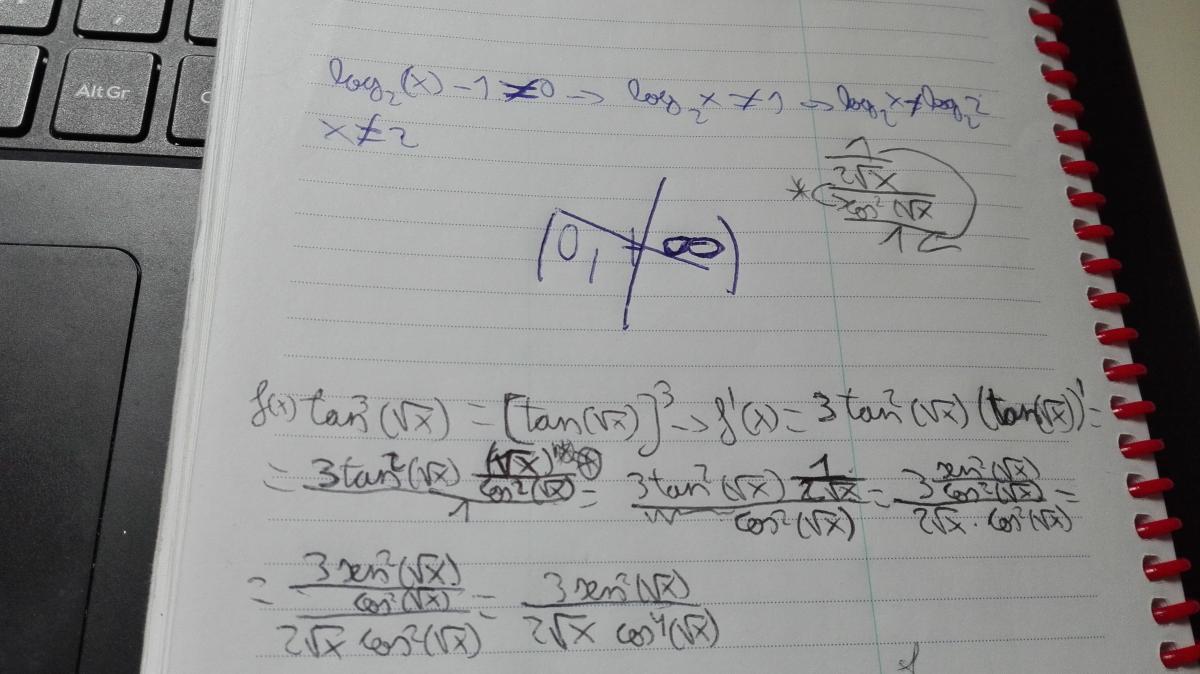 Alt Gr
log₂(x) - 1 ≠ 0 → log₂ x ≠ 1 → log₂ x ≠ log₂ 2
x ≠ 2
1
2√x
cos²(√x
1
*
(0, +∞)
f(x) tan³(√x) = [tan(√x)]³ → f'(x) = 3 tan²(√x) (tan(√x))' =
= 3tan²(√x)/1 (√x)/cos²(√x) = 3tan²(√x) 1/2√x / cos²(√x) = 3 sen²(√x)/cos²(√x) / 2√x · cos²(√x) =
= 3 sen²(√x)/cos²(√x) / 2√x cos²(√x) = 3 sen²(√x) / 2√x cos⁴(√x)